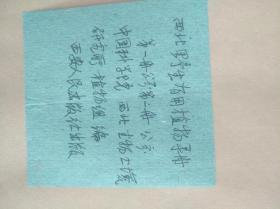 西北野生有用植物手册
第一册 公某第二册 公某
中国科学院 西北生物土壤
研究所 植物组 编
西安人民出版社出版